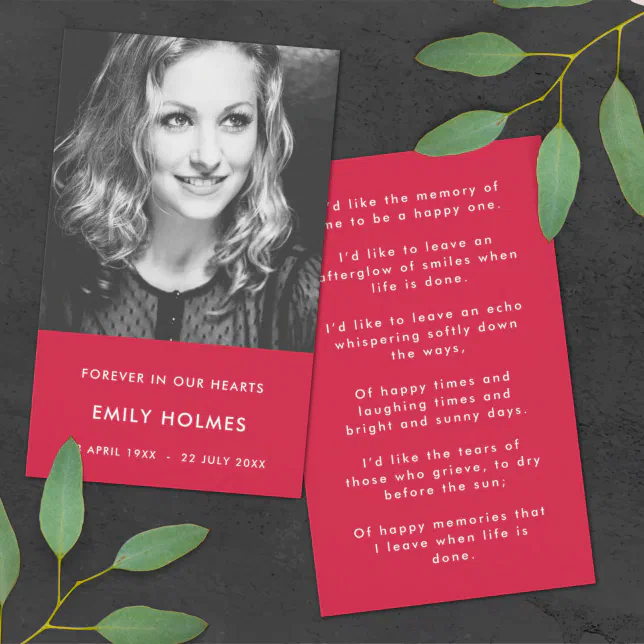 FOREVER IN OUR HEARTS
EMILY HOLMES
APRIL 19XX - 22 JULY 20XX
like the memory of
to be a happy one.
I'd like to leave an
afterglow of smiles when
life is done.
I'd like to leave an echo
whispering softly down
the ways,
Of happy times and
laughing times and
bright and sunny days.
I'd like the tears of
those who grieve, to dry
before the sun;
Of happy memories that
I leave when life is
done.